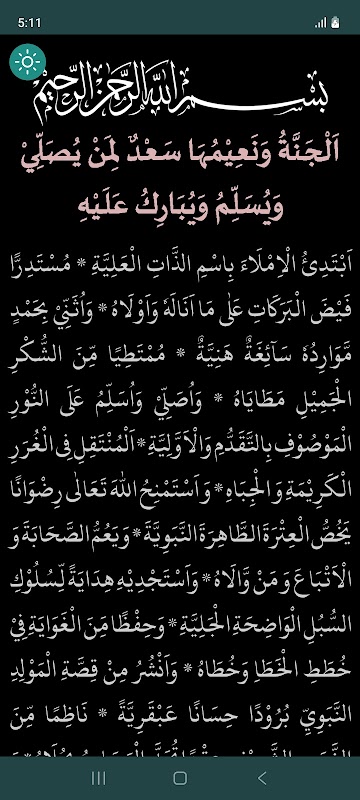 5:11
بِسْمِ اللهِ الرَّحْمٰنِ الرَّحِيْمِ
اَلْجَنَّةُ وَنَعِيْمُهَا سَعْدٌ لِمَنْ يُصَلِّيْ
وَيُسَلِّمُ وَيُبَارِكُ عَلَيْهِ
اَبْتَدِئُ الْاِمْلَاءَ بِاسْمِ الذَّاتِ الْعَلِيَّةِ * مُسْتَدِرًّا
فَيْضَ الْبَرَكَاتِ عَلٰى مَا اَنَالَهُ وَاَوْلَاهُ * وَاُثَنِّيْ بِحَمْدٍ
مَّوَارِدُهُ سَآئِغَةٌ هَنِيَّةٌ * مُمْتَطِيًا مِّنَ الشُّكْرِ
الْجَمِيْلِ مَطَايَاهُ * وَاُصَلِّيْ وَاُسَلِّمُ عَلَى النُّوْرِ
الْمَوْصُوْفِ بِالتَّقَدُّمِ وَالْاَوَّلِيَّةِ * اَلْمُنْتَقِلِ فِى الْغُرَرِ
الْكَرِيْمَةِ وَالْجِبَاهِ * وَاَسْتَمْنِحُ اللهَ تَعَالٰى رِضْوَانًا
يَخُصُّ الْعِتْرَةَ الطَّاهِرَةَ النَّبَوِيَّةَ * وَيَعُمُّ الصَّحَابَةَ وَ
الْاَتْبَاعَ وَمَنْ وَّالَاهُ * وَاَسْتَجْدِيْهِ هِدَايَةً لِّسُلُوْكِ
السُّبُلِ الْوَاضِحَةِ الْجَلِيَّةِ * وَحِفْظًا مِنَ الْغَوَايَةِ فِيْ
خُطَطِ الْخَطَاِ وَخُطَاهُ * وَاَنْشُرُ مِنْ قِصَّةِ الْمَوْلِدِ
النَّبَوِيِّ بُرُوْدًا حِسَانًا عَبْقَرِيَّةً * نَاظِمًا مِّنَ